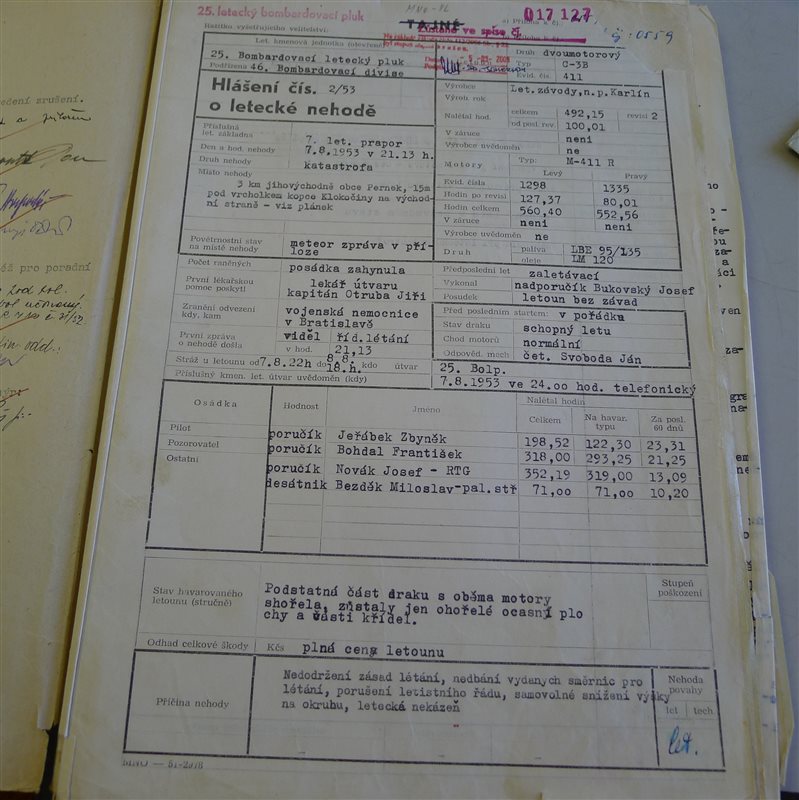 25. letecký bombardovací pluk
MNO-VL
TAJNÉ
a) Příloha k čj.
017127
čj: 0559
Razítko vyšetřujícího velitelství:
Zařazeno ve spise čj.
Let. kmenová jednotka (otevřeně)
25. Bombardovací letecký pluk
Podřízena 46. Bombardovací divise
Hlášení čís. 2/53
o letecké nehodě
Druh dvoumotorový
Typ C-3B
Evid. čís. 411
Výrobce Let.závody,n.p.Karlín
Výrob. rok
Nalétal hod. celkem 492,15 revisí 2
od posl. rev. 100,01
V záruce není
Výrobce uvědoměn ne
Příslušná
let. základna 7. let. prapor
Den a hod. nehody 7.8.1953 v 21.13 h.
Druh nehody katastrofa
Místo nehody
3 km jihovýchodně obce Pernek, 15m
pod vrcholkem kopce Klokočiny na východ-
ní straně - viz plánek
Motory Typ: M-411 R
Levý Pravý
Evid. čísla 1298 1335
Hodin po revisi 127,37 80,01
Hodin celkem 560,40 552,56
V záruce není není
Výrobce uvědoměn ne
Druh paliva LBE 95/135
oleje LM 120
Povětrnostní stav
na místě nehody meteor zpráva v pří-
loze
Počet raněných posádka zahynula
První lékařskou
pomoc poskytl lékář útvaru
kapitán Otruba Jiří
Zranění odvezeni
kdy, kam vojenská nemocnice
v Bratislavě
První zpráva
o nehodě došla viděl říd.létání
v hod. 21,13
Stráž u letounu od 7.8.22h do 8.8. 18.h. kdo útvar
Příslušný kmen. let. útvar uvědoměn (kdy)
Předposlední let zaletávací
Vykonal nadporučík Bukovský Josef
Posudek letoun bez závad
Před posledním startem: v pořádku
Stav draku schopný letu
Chod motorů normální
Odpověd. mech. čet. Svoboda Ján
25. Bolp.
7.8.1953 ve 24.oo hod. telefonický
Osádka Hodnost Jméno Nalétal hodin
Celkem Na havar. typu Za posl. 60 dnů
Pilot poručík Jeřábek Zbyněk 198,52 122,30 23,31
Pozorovatel poručík Bohdal František 318,00 293,25 21,25
Ostatní poručík Novák Josef - RTG 352,19 319,00 13,09
desátník Bezděk Miloslav-pal.stř 71,oo 71,oo 10,20
Stav havarovaného
letounu (stručně)
Podstatná část draku s oběma motory
shořela, zůstaly jen ohořelé ocasní plo
chy a části křídel.
Stupeň
poškození
Odhad celkové škody Kčs plná cena letounu
Příčina nehody
Nedodržení zásad létání, nedbání vydaných směrnic pro
létání, porušení letistního řádu, samovolné snížení výšky
na okruhu, letecká nekázeň
Nehoda
povahy
let tech.
let.
MNO — 51-2978